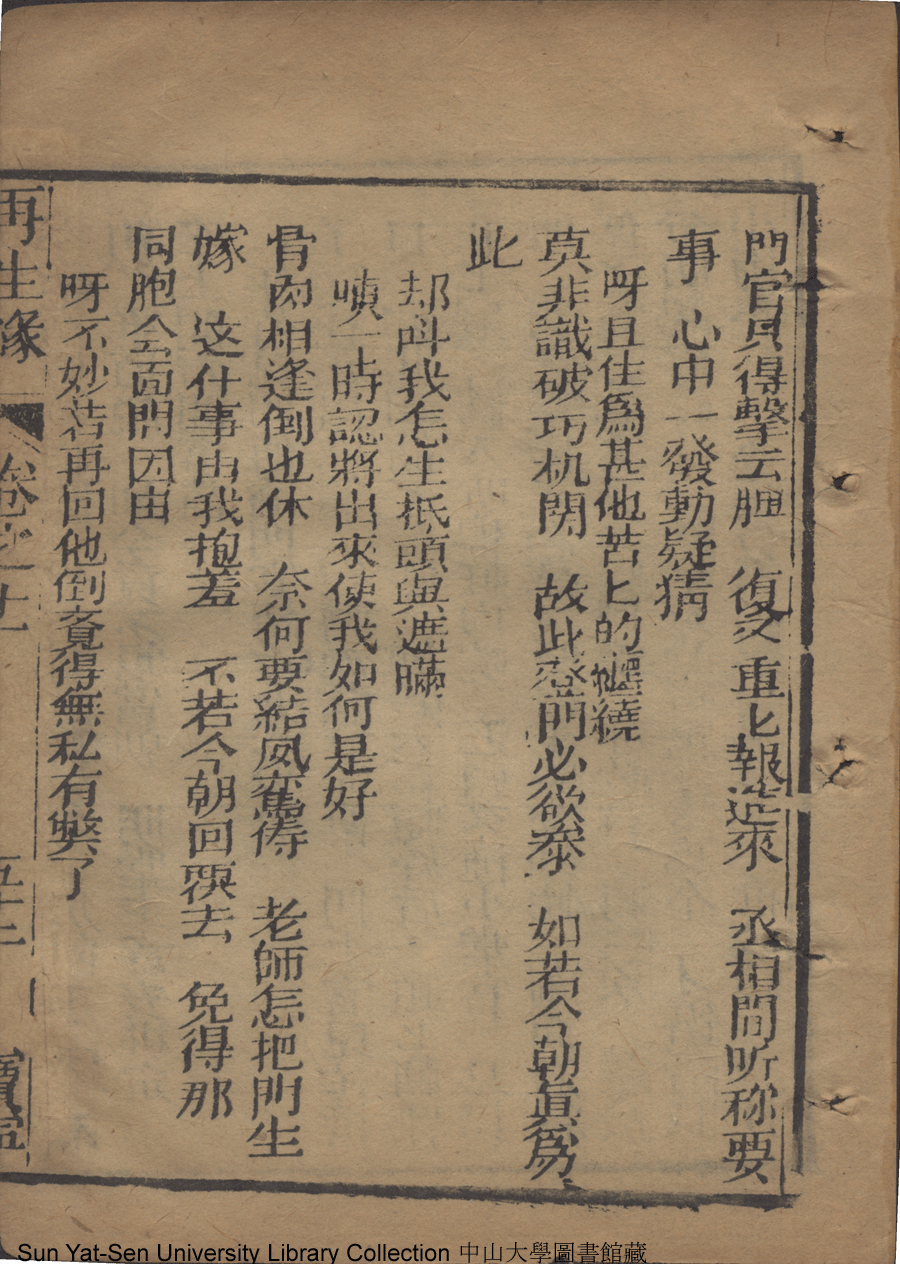 門官見得擊云腮　復又重匕報進來　丞相間听称要
事　心中一發動疑猜
呀且住爲甚他苦匕的纏繞
莫非識破巧机関　故此登門必欲叅　如若今朝眞爲
此
却呌我怎生抵頭與遮瞞
一時認將出來使我如何是好
骨肉相逢倒也休　奈何要結凤鸞俦　老師怎把門生
嫁　这什事由我抱羞　不若今朝回覆去　免得那
同胞仝面問因由
呀不妙若再回他倒竟得無私有獘了
再生緣　卷之十一　五十二　寶寧
Sun Yat-Sen University Library Collection 中山大學圖書館藏